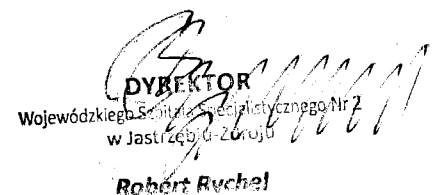 DYREKTOR
Wojewódzkiego Szpitala Specjalistycznego Nr 2
w Jastrzębiu-Zdroju
Robert Rychel